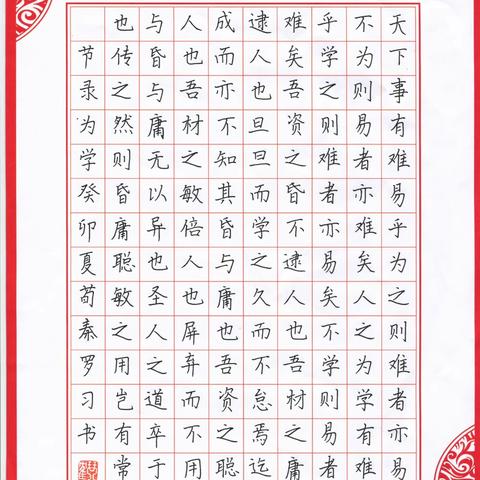 天下事有难易乎为之则难者亦易
不为则易者亦难矣人之为学有难
乎学之则难者亦易矣不学则易者
难矣吾资之昏不逮人也吾材之庸
逮人也旦旦而学之久而不怠焉迄
成而亦不知其昏与庸也吾资之聪
人也吾材之敏倍人也屏弃而不用
与昏与庸无以异也圣人之道卒于
也传之然则昏庸聪敏之用岂有常
节录为学癸卯夏苟秦罗习书